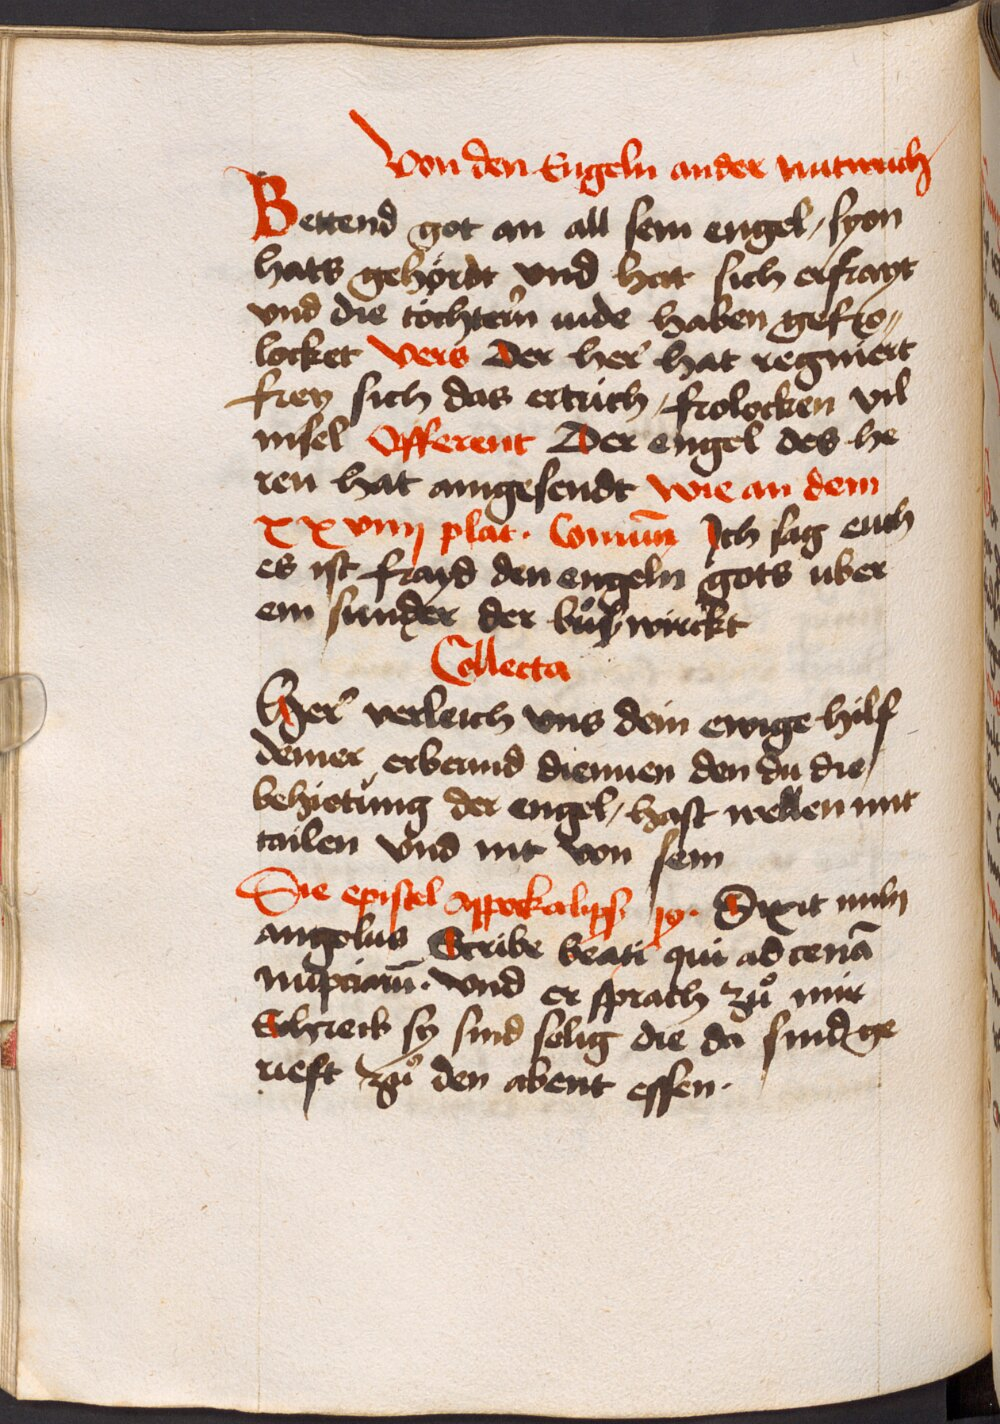 Von den Engeln ander mitwuch
Bettend got an all sein engel, syon
hats gehördt vnd hat sich erfrayt
vnd die töchtern iude haben gefro„
locket Vers Der her hat regniert
frey sich das ertrich, frolocken vil
insel Offerent Der engel des he
ren hat aingesendt wie an dem
xxviiij plat. Comūn Ich sag euch
es ist frayd den engeln gots vber
ein sunder der bůß wirckt
Collecta
Her verleich vns dein ewige hilf
deiner erbermd diennen den du die
behietung der engel, hast wellen mit
tailen vnd nit von sein
Die epistel Appokalips 19. Dixit mihi
angelus Scribe beati qui ad cenā
nupciarū. Vnd er sprach zů mir
Schreib sy sind selig die da sind ge
rieft zů den abent essen.